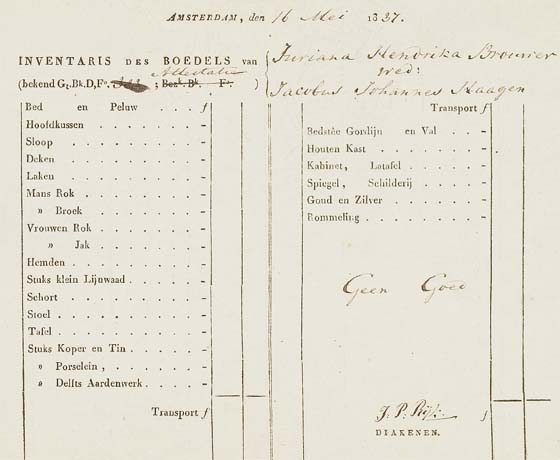 AMSTERDAM, den 16 Mei 1837.
INVENTARIS DES BOEDELS van Juriana Hendrika Brouwer
Attestatie wed:
(bekend Gt. Bk. D, Fo. ; Bezk. Bk. Fo. ) Jacobus Johannes Haagen
Bed en Peluw . . . ƒ
Hoofdkussen . . . . . . . -
Sloop . . . . . . . . . -
Deken . . . . . . . . . -
Laken . . . . . . . . . -
Mans Rok . . . . . . . . -
» Broek . . . . . . . -
Vrouwen Rok . . . . . . . -
» Jak . . . . . . . -
Hemden . . . . . . . . . -
Stuks klein Lijnwaad . . . . . -
Schort . . . . . . . . . -
Stoel . . . . . . . . . -
Tafel . . . . . . . . . -
Stuks Koper en Tin . . . . . -
» Porselein , . . . . . -
» Delfts Aardenwerk . . . . -
Transport ƒ
Transport ƒ
Bedstêe Gordijn en Val . . -
Houten Kast . . . . . . -
Kabinet, Latafel . . . . . -
Spiegel, Schilderij . . . . -
Goud en Zilver . . . . . -
Rommeling . . . . . . . -
Geen Goed
J. P. Rijk. ƒ
DIAKENEN.